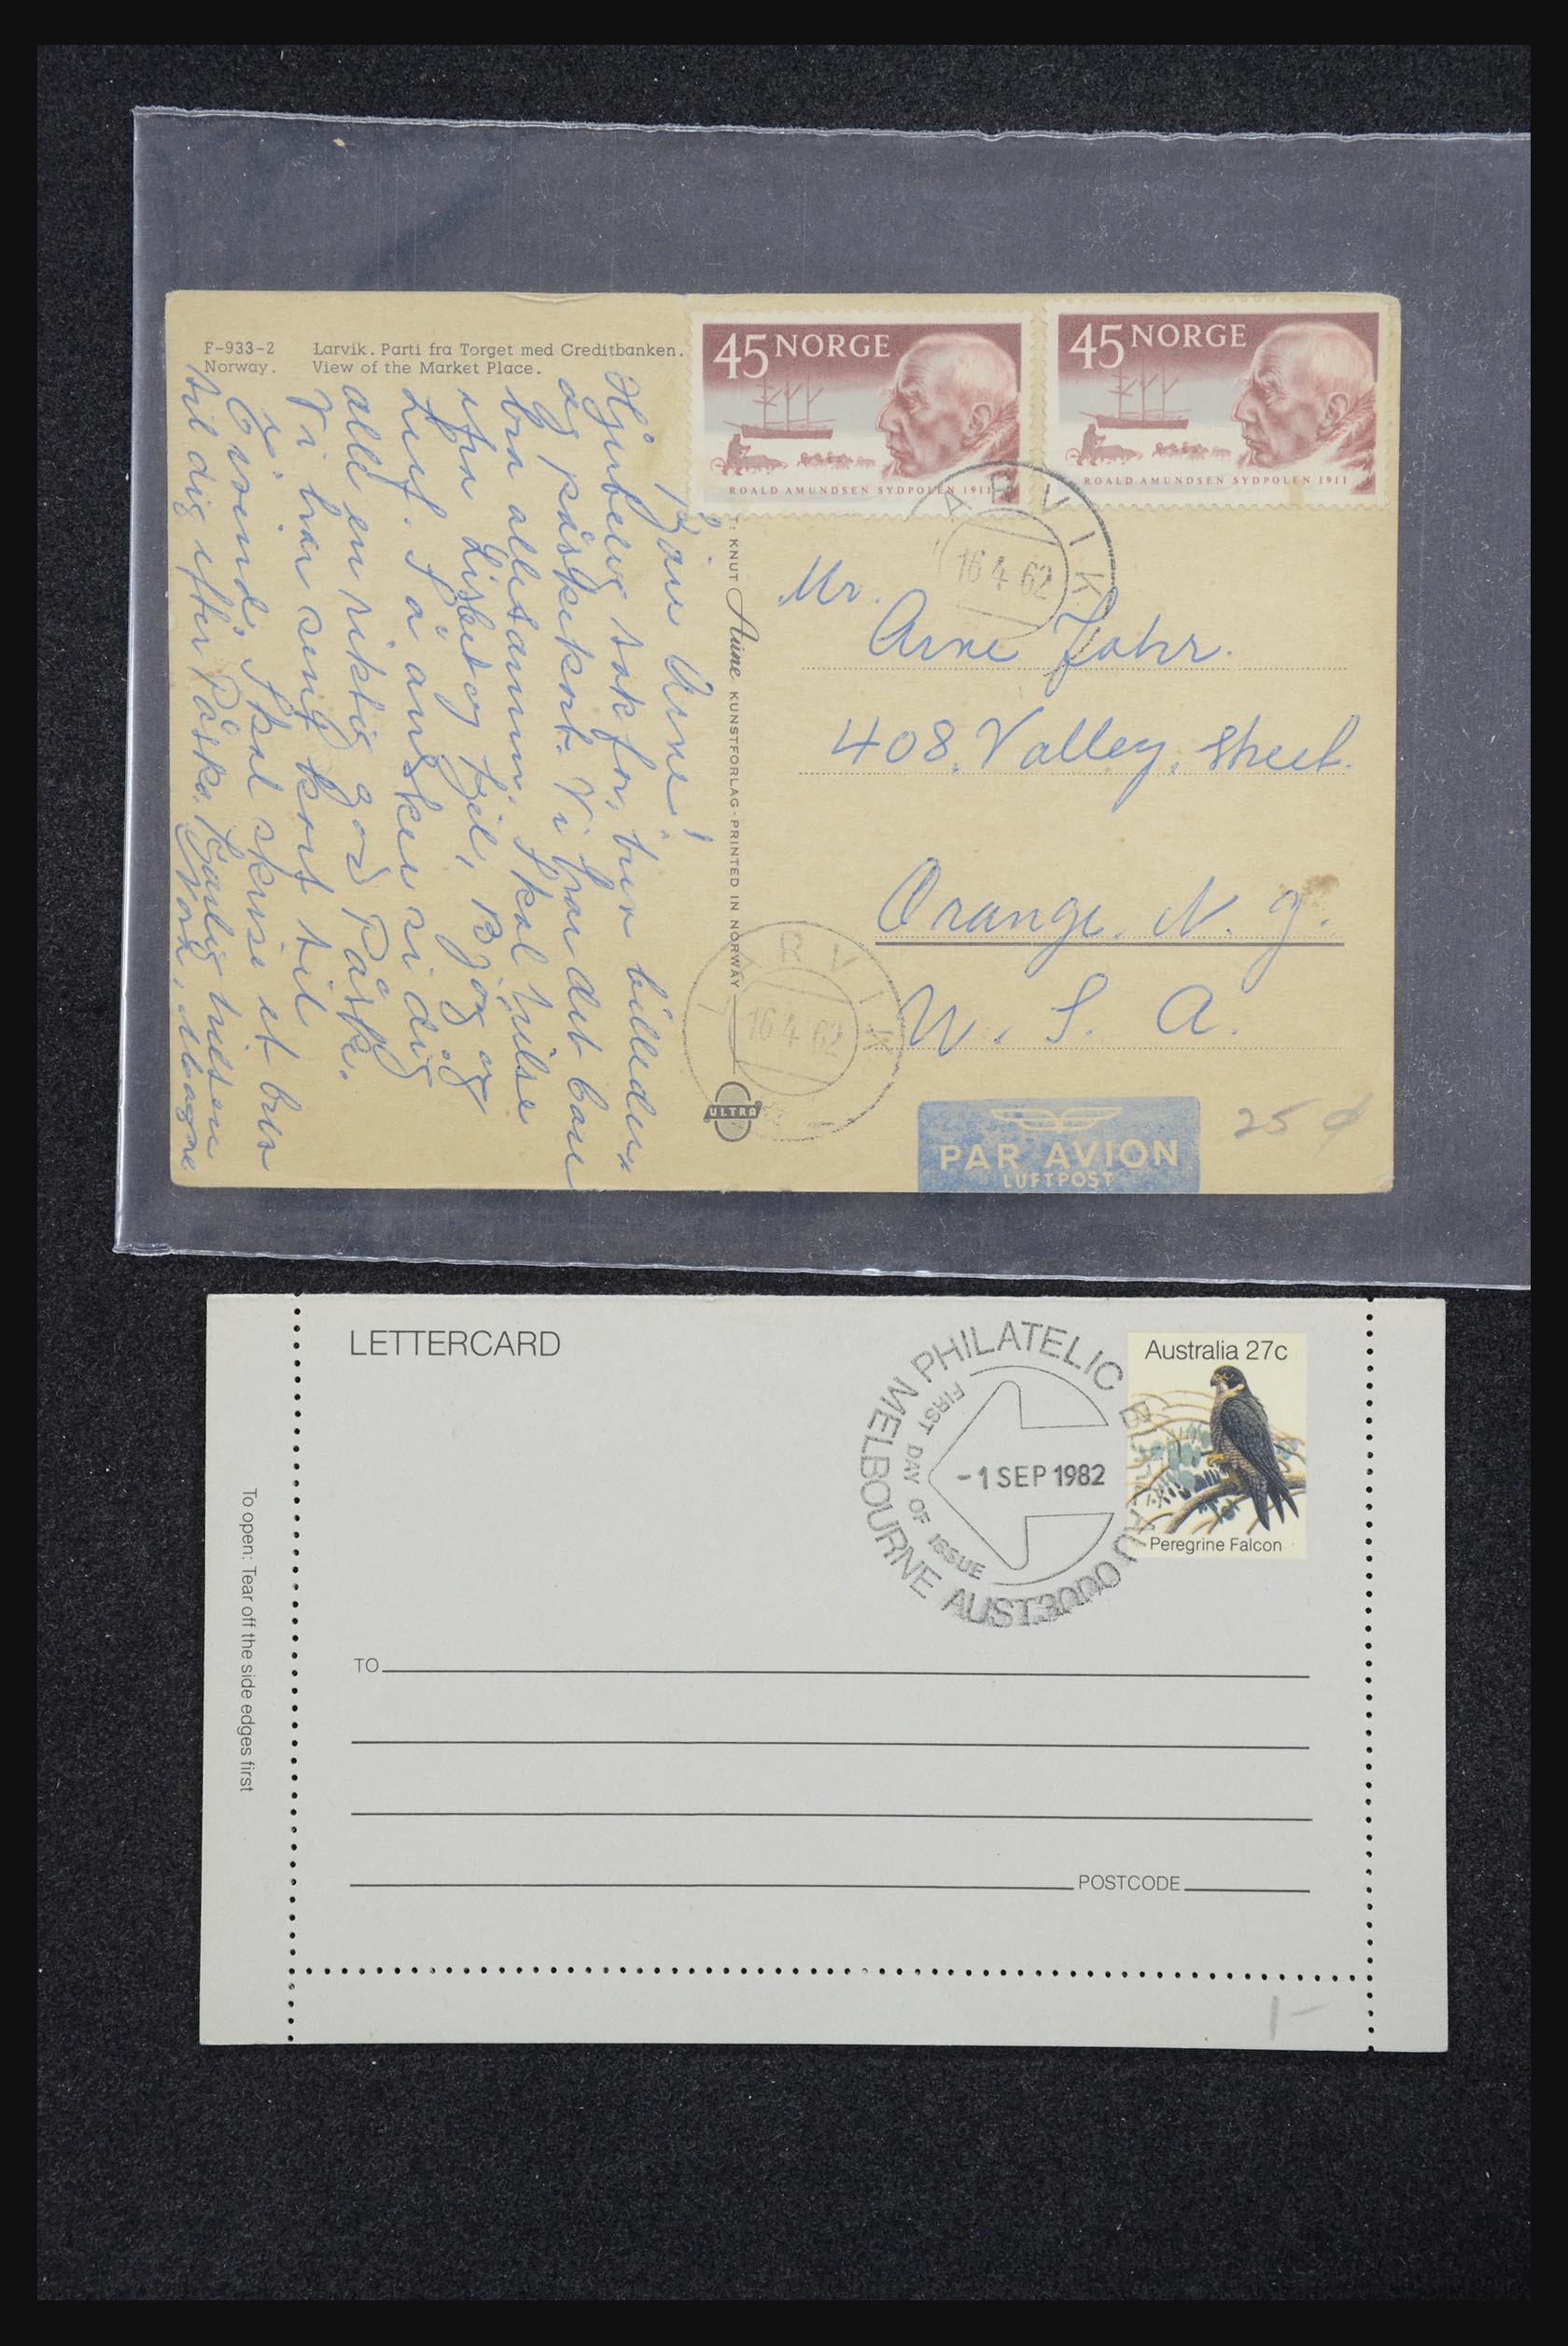 F-933-2 Larvik. Parti fra Torget med Creditbanken.
Norway. View of the Market Place.
45 NORGE
ROALD AMUNDSEN SYDPOLEN 1911
45 NORGE
ROALD AMUNDSEN SYDPOLEN 1911
ARVIK
16 4 62
Kjære Arne!
Hjertelig takk for brev billeder
og påskekort. Vi har det bare
bra allesammen. Skal hilse
ifra Lisbet og Kjel, Bjørg og
Leif. Så ønsker vi dig
alle en riktig god Påske.
Vi har sent kort til
Øivind. Skal skrive et brev
til dig efter Påske. Kjærlig hilsen
Mr.
Arne Johr.
408. Valley. Street.
Orange. N. J.
U. S. A.
KNUT Aune KUNSTFORLAG · PRINTED IN NORWAY
LARVIK
16 4 62
ULTRA
PAR AVION
LUFTPOST
25 ¢
LETTERCARD
PHILATELIC BUREAU
MELBOURNE AUST 3000
FIRST DAY OF ISSUE
-1 SEP 1982
Australia 27c
Peregrine Falcon
To open: Tear off the side edges first
TO
POSTCODE
1-